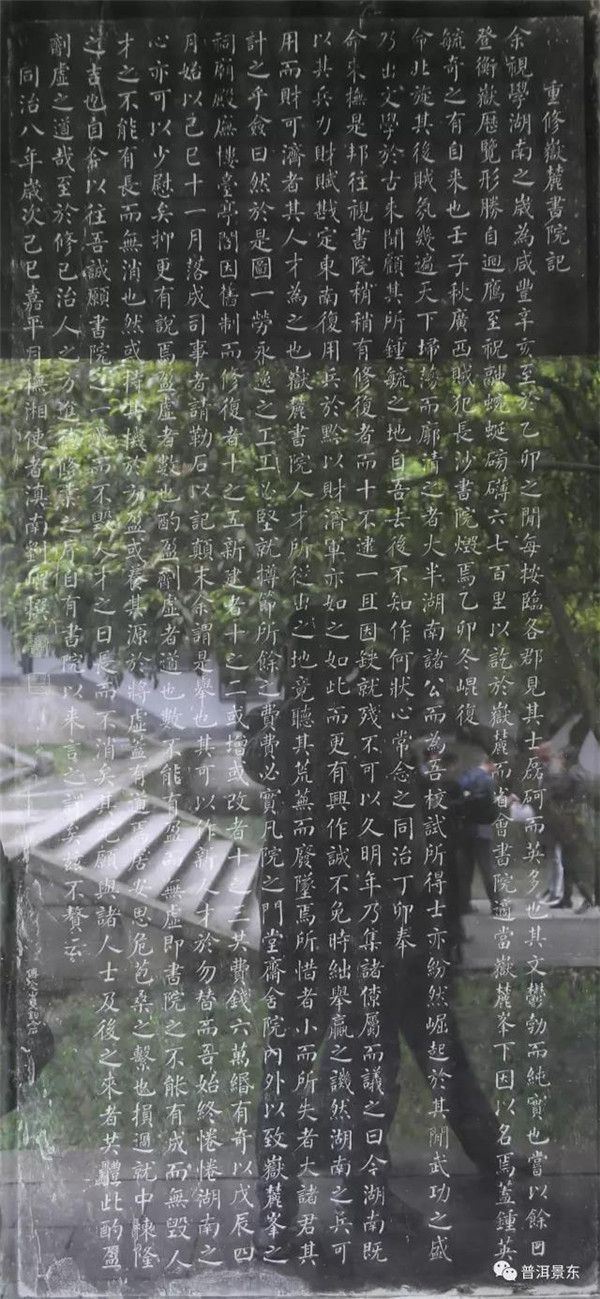 重修嶽麓書院記
余視學湖南之歲為咸豐辛亥至於乙卯之閒每按臨各郡見其士磊砢而英多也其文鬱勃而純實也嘗以餘日
登衡嶽歷覽形勝自迴鴈至祝融蜿蜒磅礴六七百里以訖於嶽麓而省會書院適當嶽麓峯下因以名焉蓋鍾英
毓奇之有自来也壬子秋廣西賊犯長沙書院燬焉乙卯冬崐復
命北旋其後賊氛幾遍天下埽蕩而廓清之者大半湖南諸公而為吾校試所得士亦紛然崛起於其閒武功之盛
乃出文學於古未聞顧其所鍾毓之地自吾去後不知作何狀心常念之同治丁卯奉
命来撫是邦往視書院稍稍有修復者而十不逮一且因鈌就殘不可以久明年乃集諸僚屬而議之曰今湖南既
以其兵力財賦戡定東南復用兵於黔以財濟軍亦如之如此而更有興作誠不免時絀舉贏之譏然湖南之兵可
用而財可濟者其人才為之也嶽麓書院人才所從出之地竟聽其荒蕪而廢墜焉所惜者小而所失者大諸君其
計之乎僉曰然於是圖一勞永逸之工工必堅就撙節所餘之費費必實凡院之門堂齋舍院內外以致嶽麓峯之
祠廟殿廡樓臺亭閣因舊制而修復者十之五新建者十之二或增或改者十之三共費錢六萬緡有奇以戊辰四
月始以己巳十一月落成司事者請勒石以記顛末余謂是舉也其可以作新人才於勿替而吾始終惓惓湖南之
心亦可以少慰矣抑更有說焉盈虛者數也酌盈劑虛者道也數不能有盈而無虛即書院之不能有成而無毀人
才之不能有長而無消也然或持其機於方盈或養其源於將虛蓋有道焉居安思危苞桑之繫也損過就中棟隆
之吉也自茲以往吾誠願書院之一成而不毀人才之日長而不消矣其尤願與諸人士及後之来者共體此酌盈
劑虛之道哉至於修己治人之方進修業之序自有書院以来言之詳矣茲不贅云
同治八年歲次己巳嘉平月撫湘使者滇南劉崐撰
普洱景东